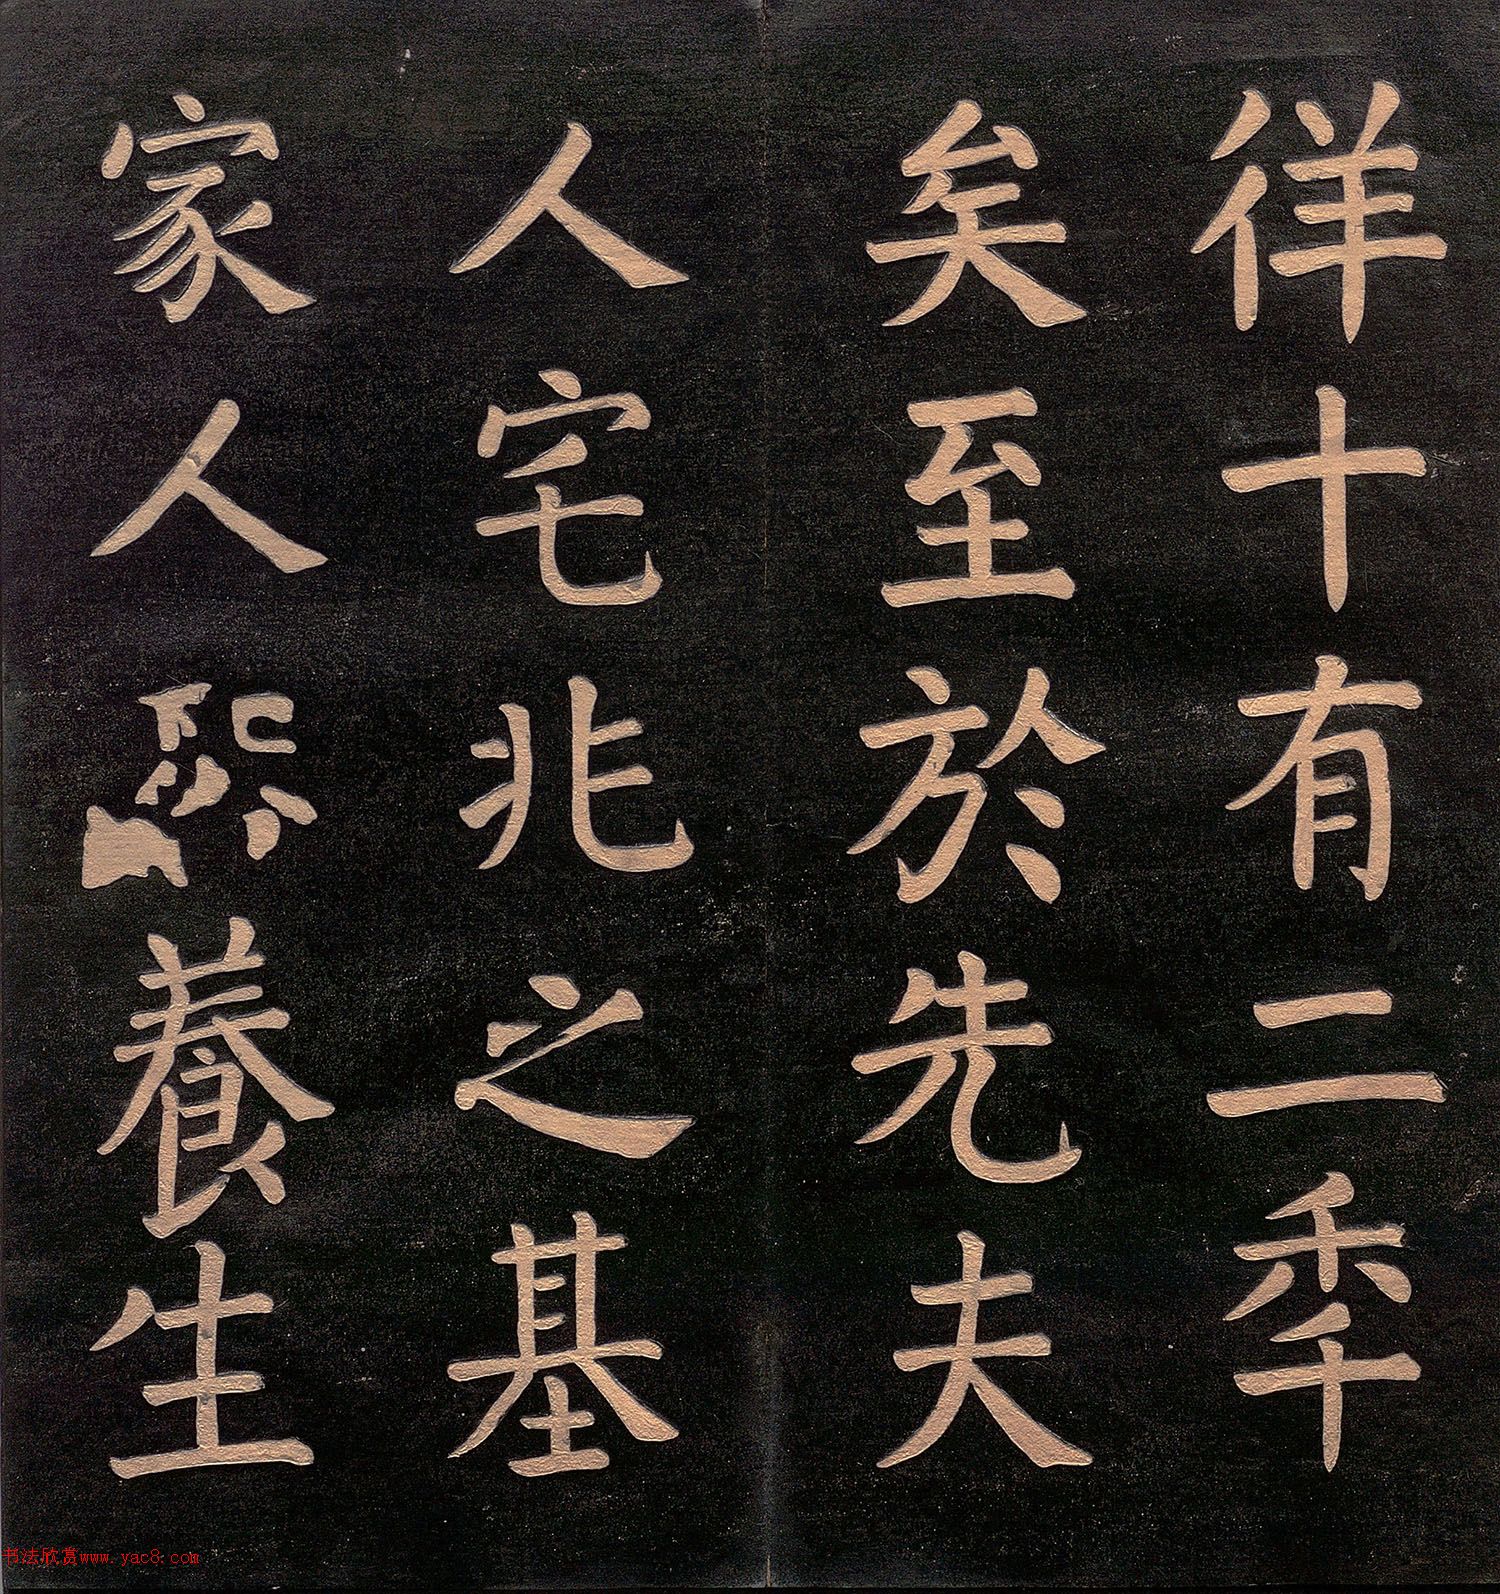 徉十有二秊
矣至於先夫
人宅兆之基
家人養生
书法欣赏www.yac8.com